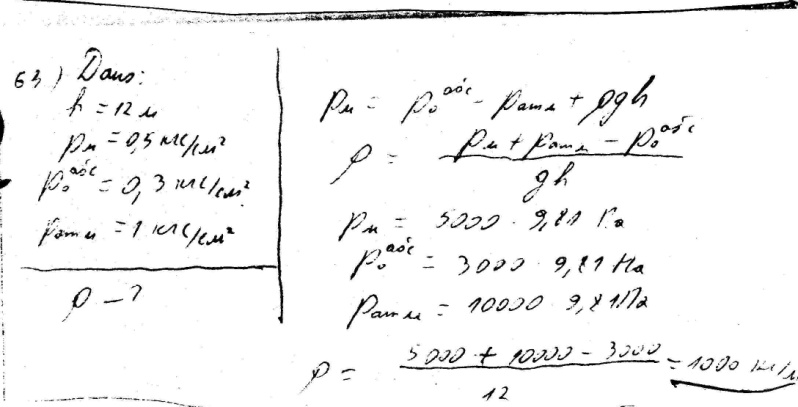 63) Дано:
h = 12 м
pм = 0,5 кгс/см²
p₀ᵃᵇᶜ = 0,3 кгс/см²
pатм = 1 кгс/см²
ρ – ?
pм = p₀ᵃᵇᶜ - pатм + ρgh
ρ = (pм + pатм - p₀ᵃᵇᶜ) / gh
pм = 5000 · 9,81 Па
p₀ᵃᵇᶜ = 3000 · 9,81 Па
pатм = 10000 · 9,81 Па
ρ = (5000 + 10000 - 3000) / 12 = 1000 кг/м